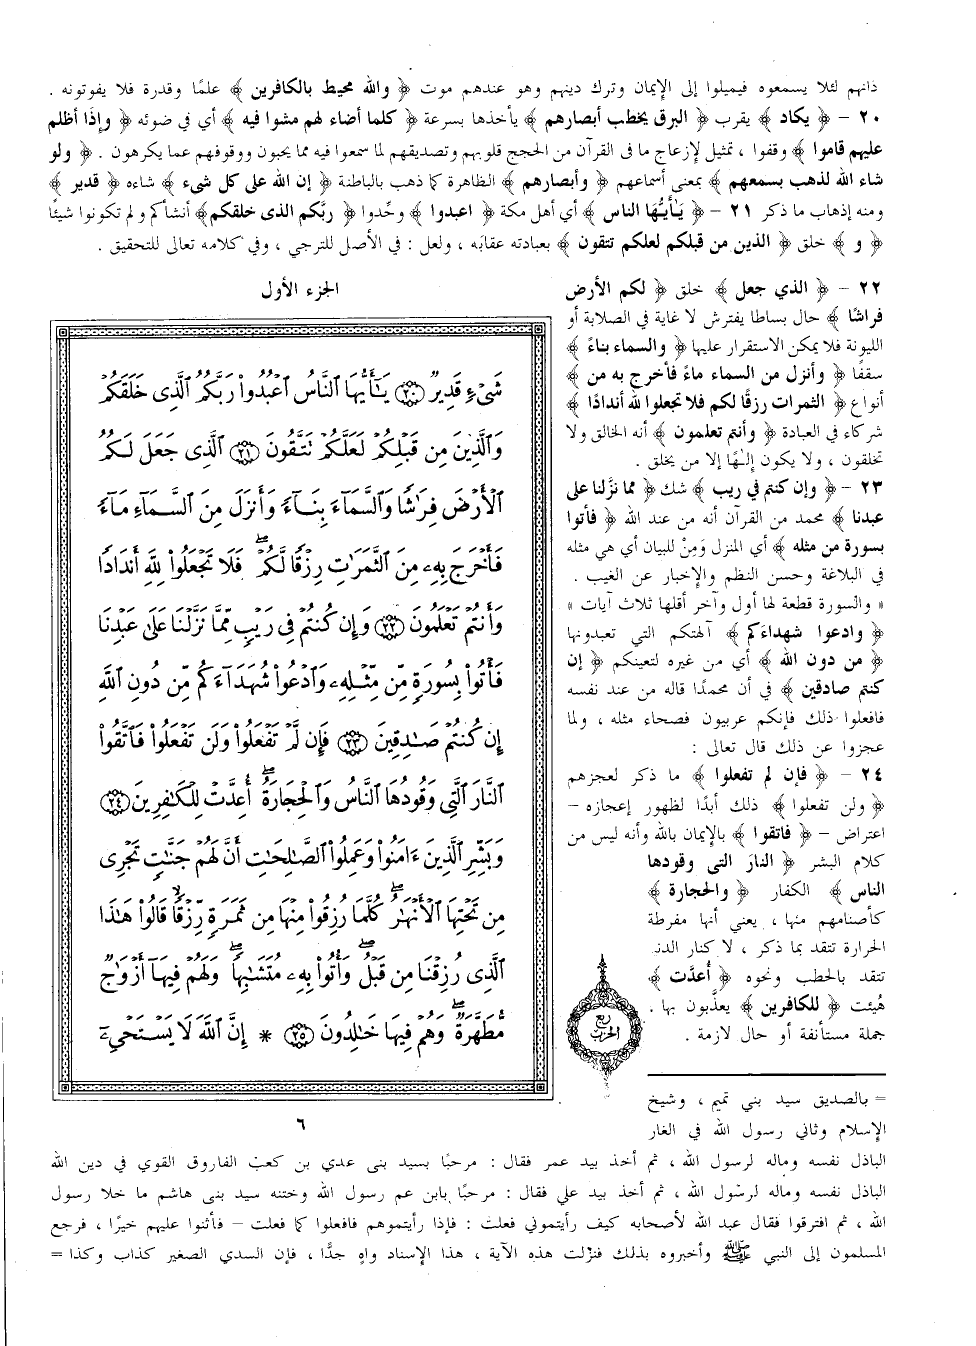 ذانهم لئلا يسمعوه فيميلوا إلى الإيمان وترك دينهم وهو عندهم موت ﴿ والله محيط بالكافرين ﴾ علمًا وقدرة فلا يفوتونه .
٢٠ - ﴿ يكاد ﴾ يقرب ﴿ البرق يخطب أبصارهم ﴾ يأخذها بسرعة ﴿ كلما أضاء لهم مشوا فيه ﴾ أي في ضوئه ﴿ وإذا أظلم
عليهم قاموا ﴾ وقفوا ، تمثيل لإزعاج ما فى القرآن من الحجج قلوبهم وتصديقهم لما سمعوا فيه مما يحبون ووقوفهم عما يكرهون . ﴿ ولو
شاء الله لذهب بسمعهم ﴾ بمعنى أسماعهم ﴿ وأبصارهم ﴾ الظاهرة كما ذهب بالباطنة ﴿ إن الله على كل شىء ﴾ شاءه ﴿ قدير ﴾
ومنه إذهاب ما ذكر ٢١ - ﴿ يَـٰأيـُّها الناس ﴾ أي أهل مكة ﴿ اعبدوا ﴾ وحِّدوا ﴿ ربَّكم الذى خلقكم﴾ أنشأكم ولم تكونوا شيئًا
﴿ و ﴾ خلق ﴿ الذين من قبلكم لعلكم تتقون ﴾ بعبادته عقابَه ، ولعل : في الأصل للترجي ، وفي كلامه تعالى للتحقيق .
٢٢ - ﴿ الذي جعل ﴾ خلق ﴿ لكم الأرض
فراشًا ﴾ حال بساطا يفترش لا غاية في الصلابة أو
الليونة فلا يمكن الاستقرار عليها ﴿ والسماء بناءً ﴾
سقفًا ﴿ وأنزل من السماء ماءً فأخرج به من ﴾
أنواع ﴿ الثمرات رزقًا لكم فلا تجعلوا لله أندادًا ﴾
شركاء في العبادة ﴿ وأنتم تعلمون ﴾ أنه الخالق ولا
تخلقون ، ولا يكون إلـٰهًا إلا من يخلق .
٢٣ - ﴿ وإن كنتم في ريب ﴾ شك ﴿ مما نزَّلنا على
عبدنا ﴾ محمد من القرآن أنه من عند الله ﴿ فأتوا
بسورة من مثله ﴾ أي المنزل وَمِنْ للبيان أي هي مثله
في البلاغة وحسن النظم والإخبار عن الغيب .
« والسورة قطعة لها أول وآخر أقلها ثلاث آيات »
﴿ وادعوا شهداءكم ﴾ آلهتكم التي تعبدونها
﴿ من دون الله ﴾ أي من غيره لتعينكم ﴿ إن
كنتم صادقين ﴾ في أن محمدًا قاله من عند نفسه
فافعلوا ذلك فإنكم عربيون فصحاء مثله ، ولما
عجزوا عن ذلك قال تعالى :
٢٤ - ﴿ فإن لم تفعلوا ﴾ ما ذكر لعجزهم
﴿ ولن تفعلوا ﴾ ذلك أبدًا لظهور إعجازه -
اعتراض - ﴿ فاتقوا ﴾ بالإيمان بالله وأنه ليس من
كلام البشر ﴿ النارَ التى وقودها
الناس ﴾ الكفار ﴿ والحجارة ﴾
كأصنامهم منها ، يعني أنها مفرطة
الحرارة تتقد بما ذكر ، لا كنار الدنـ
تتقد بالحطب ونحوه ﴿ أُعدَّت ﴾
هُيئت ﴿ للكافرين ﴾ يعذَّبون بها .
جملة مستأنفة أو حال لازمة .
الجزء الأول
شَىْءٍ قَدِيرٌ ﴿٢٠﴾ يَـٰٓأَيُّهَا ٱلنَّاسُ ٱعْبُدُوا۟ رَبَّكُمُ ٱلَّذِى خَلَقَكُمْ
وَٱلَّذِينَ مِن قَبْلِكُمْ لَعَلَّكُمْ تَتَّقُونَ ﴿٢١﴾ ٱلَّذِى جَعَلَ لَكُمُ
ٱلْأَرْضَ فِرَٰشًا وَٱلسَّمَآءَ بِنَآءً وَأَنزَلَ مِنَ ٱلسَّمَآءِ مَآءً
فَأَخْرَجَ بِهِۦ مِنَ ٱلثَّمَرَٰتِ رِزْقًا لَّكُمْ ۖ فَلَا تَجْعَلُوا۟ لِلَّهِ أَندَادًا
وَأَنتُمْ تَعْلَمُونَ ﴿٢٢﴾ وَإِن كُنتُمْ فِى رَيْبٍ مِّمَّا نَزَّلْنَا عَلَىٰ عَبْدِنَا
فَأْتُوا۟ بِسُورَةٍ مِّن مِّثْلِهِۦ وَٱدْعُوا۟ شُهَدَآءَكُم مِّن دُونِ ٱللَّهِ
إِن كُنتُمْ صَـٰدِقِينَ ﴿٢٣﴾ فَإِن لَّمْ تَفْعَلُوا۟ وَلَن تَفْعَلُوا۟ فَٱتَّقُوا۟
ٱلنَّارَ ٱلَّتِى وَقُودُهَا ٱلنَّاسُ وَٱلْحِجَارَةُ ۖ أُعِدَّتْ لِلْكَـٰفِرِينَ ﴿٢٤﴾
وَبَشِّرِ ٱلَّذِينَ ءَامَنُوا۟ وَعَمِلُوا۟ ٱلصَّـٰلِحَـٰتِ أَنَّ لَهُمْ جَنَّـٰتٍ تَجْرِى
مِن تَحْتِهَا ٱلْأَنْهَـٰرُ ۖ كُلَّمَا رُزِقُوا۟ مِنْهَا مِن ثَمَرَةٍ رِّزْقًا ۙ قَالُوا۟ هَـٰذَا
ٱلَّذِى رُزِقْنَا مِن قَبْلُ ۖ وَأُتُوا۟ بِهِۦ مُتَشَـٰبِهًا ۖ وَلَهُمْ فِيهَآ أَزْوَٰجٌ
مُّطَهَّرَةٌ ۖ وَهُمْ فِيهَا خَـٰلِدُونَ ﴿٢٥﴾ * إِنَّ ٱللَّهَ لَا يَسْتَحْىِۦٓ
ربع
الحزب
٦
= بالصديق سيد بني تميم ، وشيخ
الإسلام وثاني رسول الله في الغار
الباذل نفسه وماله لرسول الله ، ثم أخذ بيد عمر فقال : مرحبًا بسيد بنى عدي بن كعب الفاروق القوي في دين الله
الباذل نفسه وماله لرسول الله ، ثم أخذ بيد علي فقال : مرحبًا بابن عم رسول الله وختنه سيد بنى هاشم ما خلا رسول
الله ، ثم افترقوا فقال عبد الله لأصحابه كيف رأيتموني فعلت : فإذا رأيتموهم فافعلوا كما فعلت - فأثنوا عليهم خيرًا ، فرجع
المسلمون إلى النبي ﷺ وأخبروه بذلك فنزلت هذه الآية ، هذا الإسناد واهٍ جدًّا ، فإن السدي الصغير كذاب وكذا =